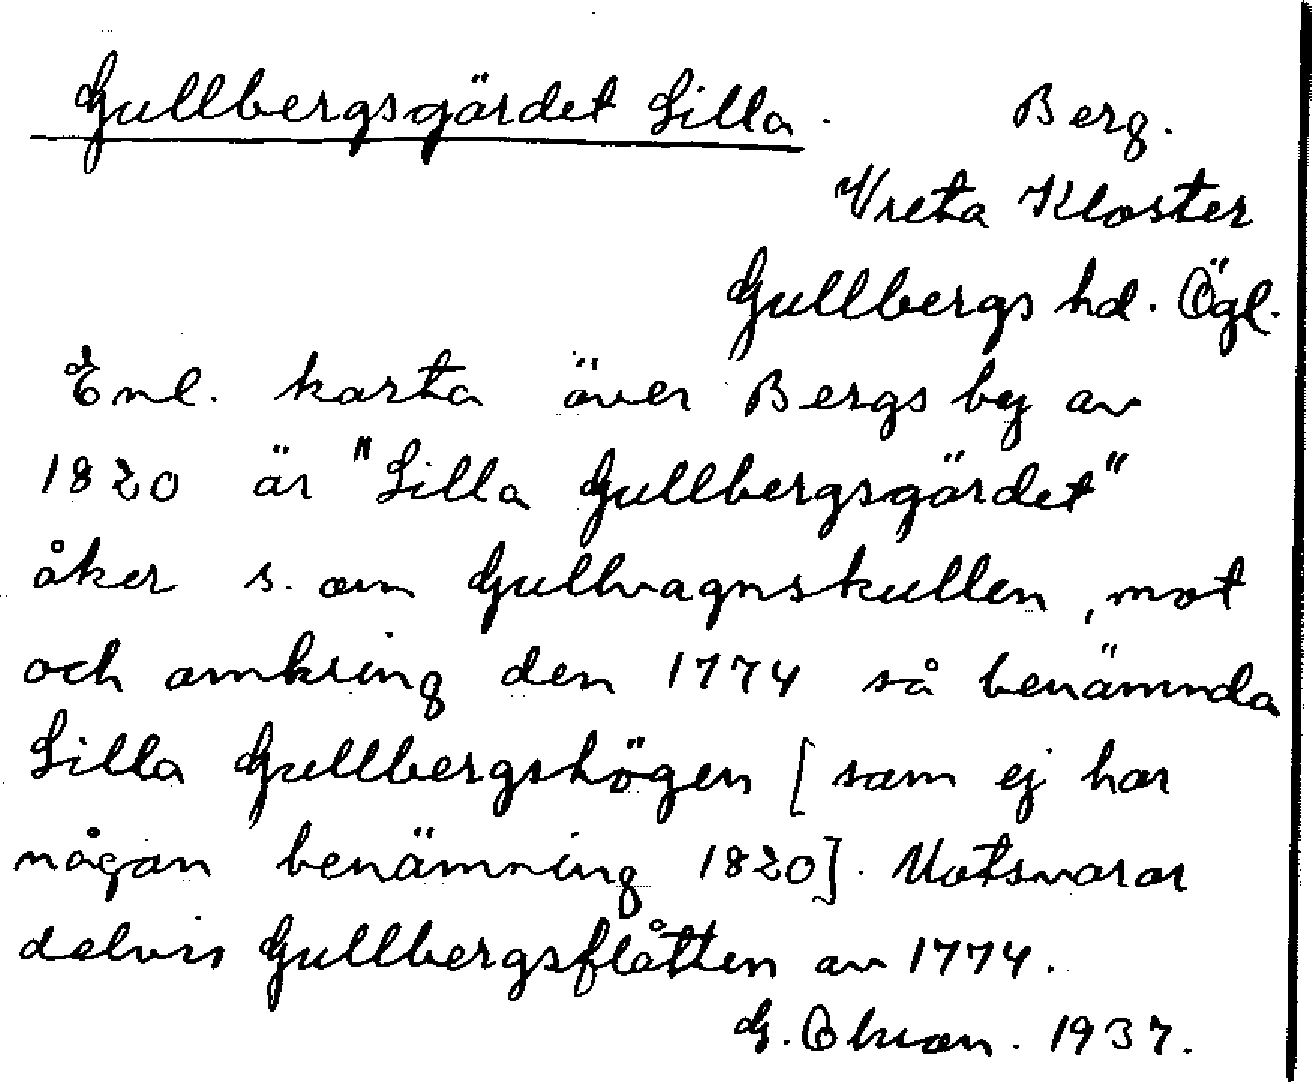 Gullbergsgärdet Lilla. Berg.
Vreta Kloster
Gullbergs hd. Ögl.
Enl. karta över Bergs by av
1820 är "Lilla Gullbergsgärdet"
åker s. om Gullvagnskullen, mot
och omkring den 1774 så benämnda
Lilla Gullbergshögen [som ej har
någon benämning 1820]. Motsvarar
delvis Gullbergsflåtten av 1774.
G. 1937.